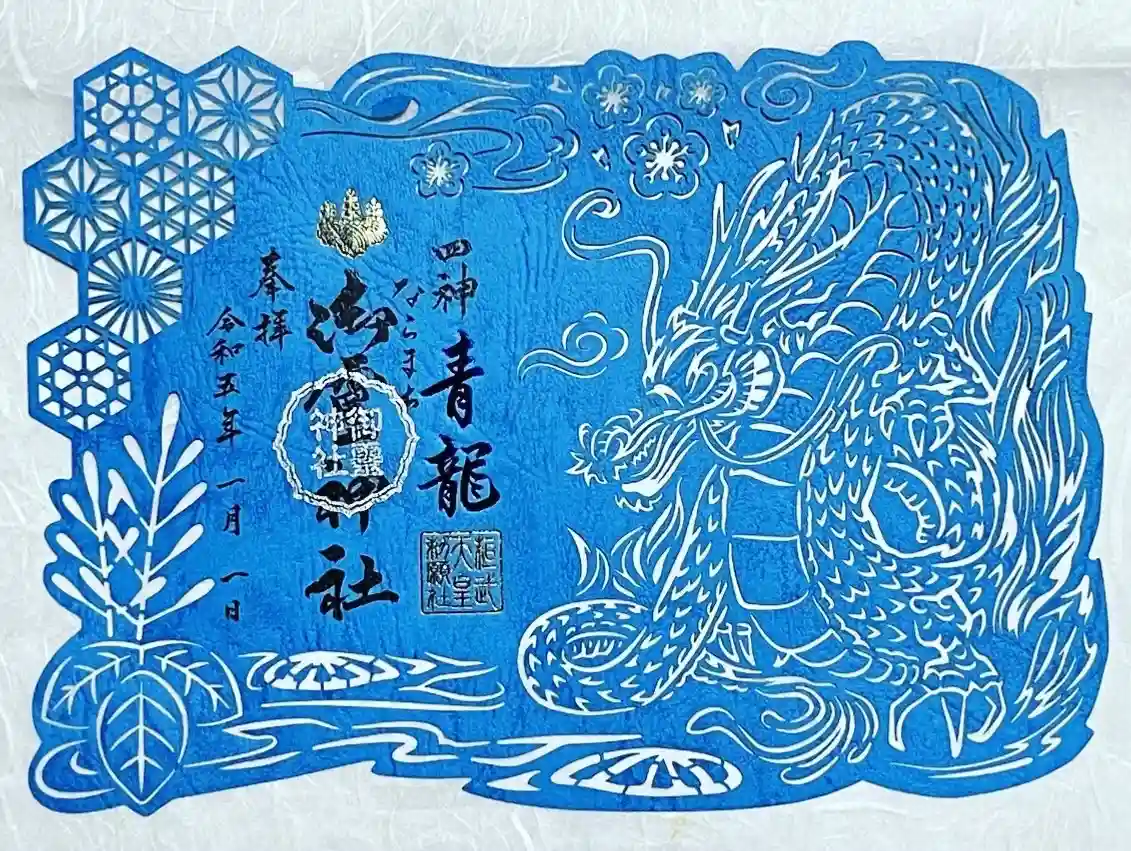 四神 青龍
桓武
天皇
勅願社
ならまち
御霊神社
御霊
神社
奉拝
令和五年 一月 一日